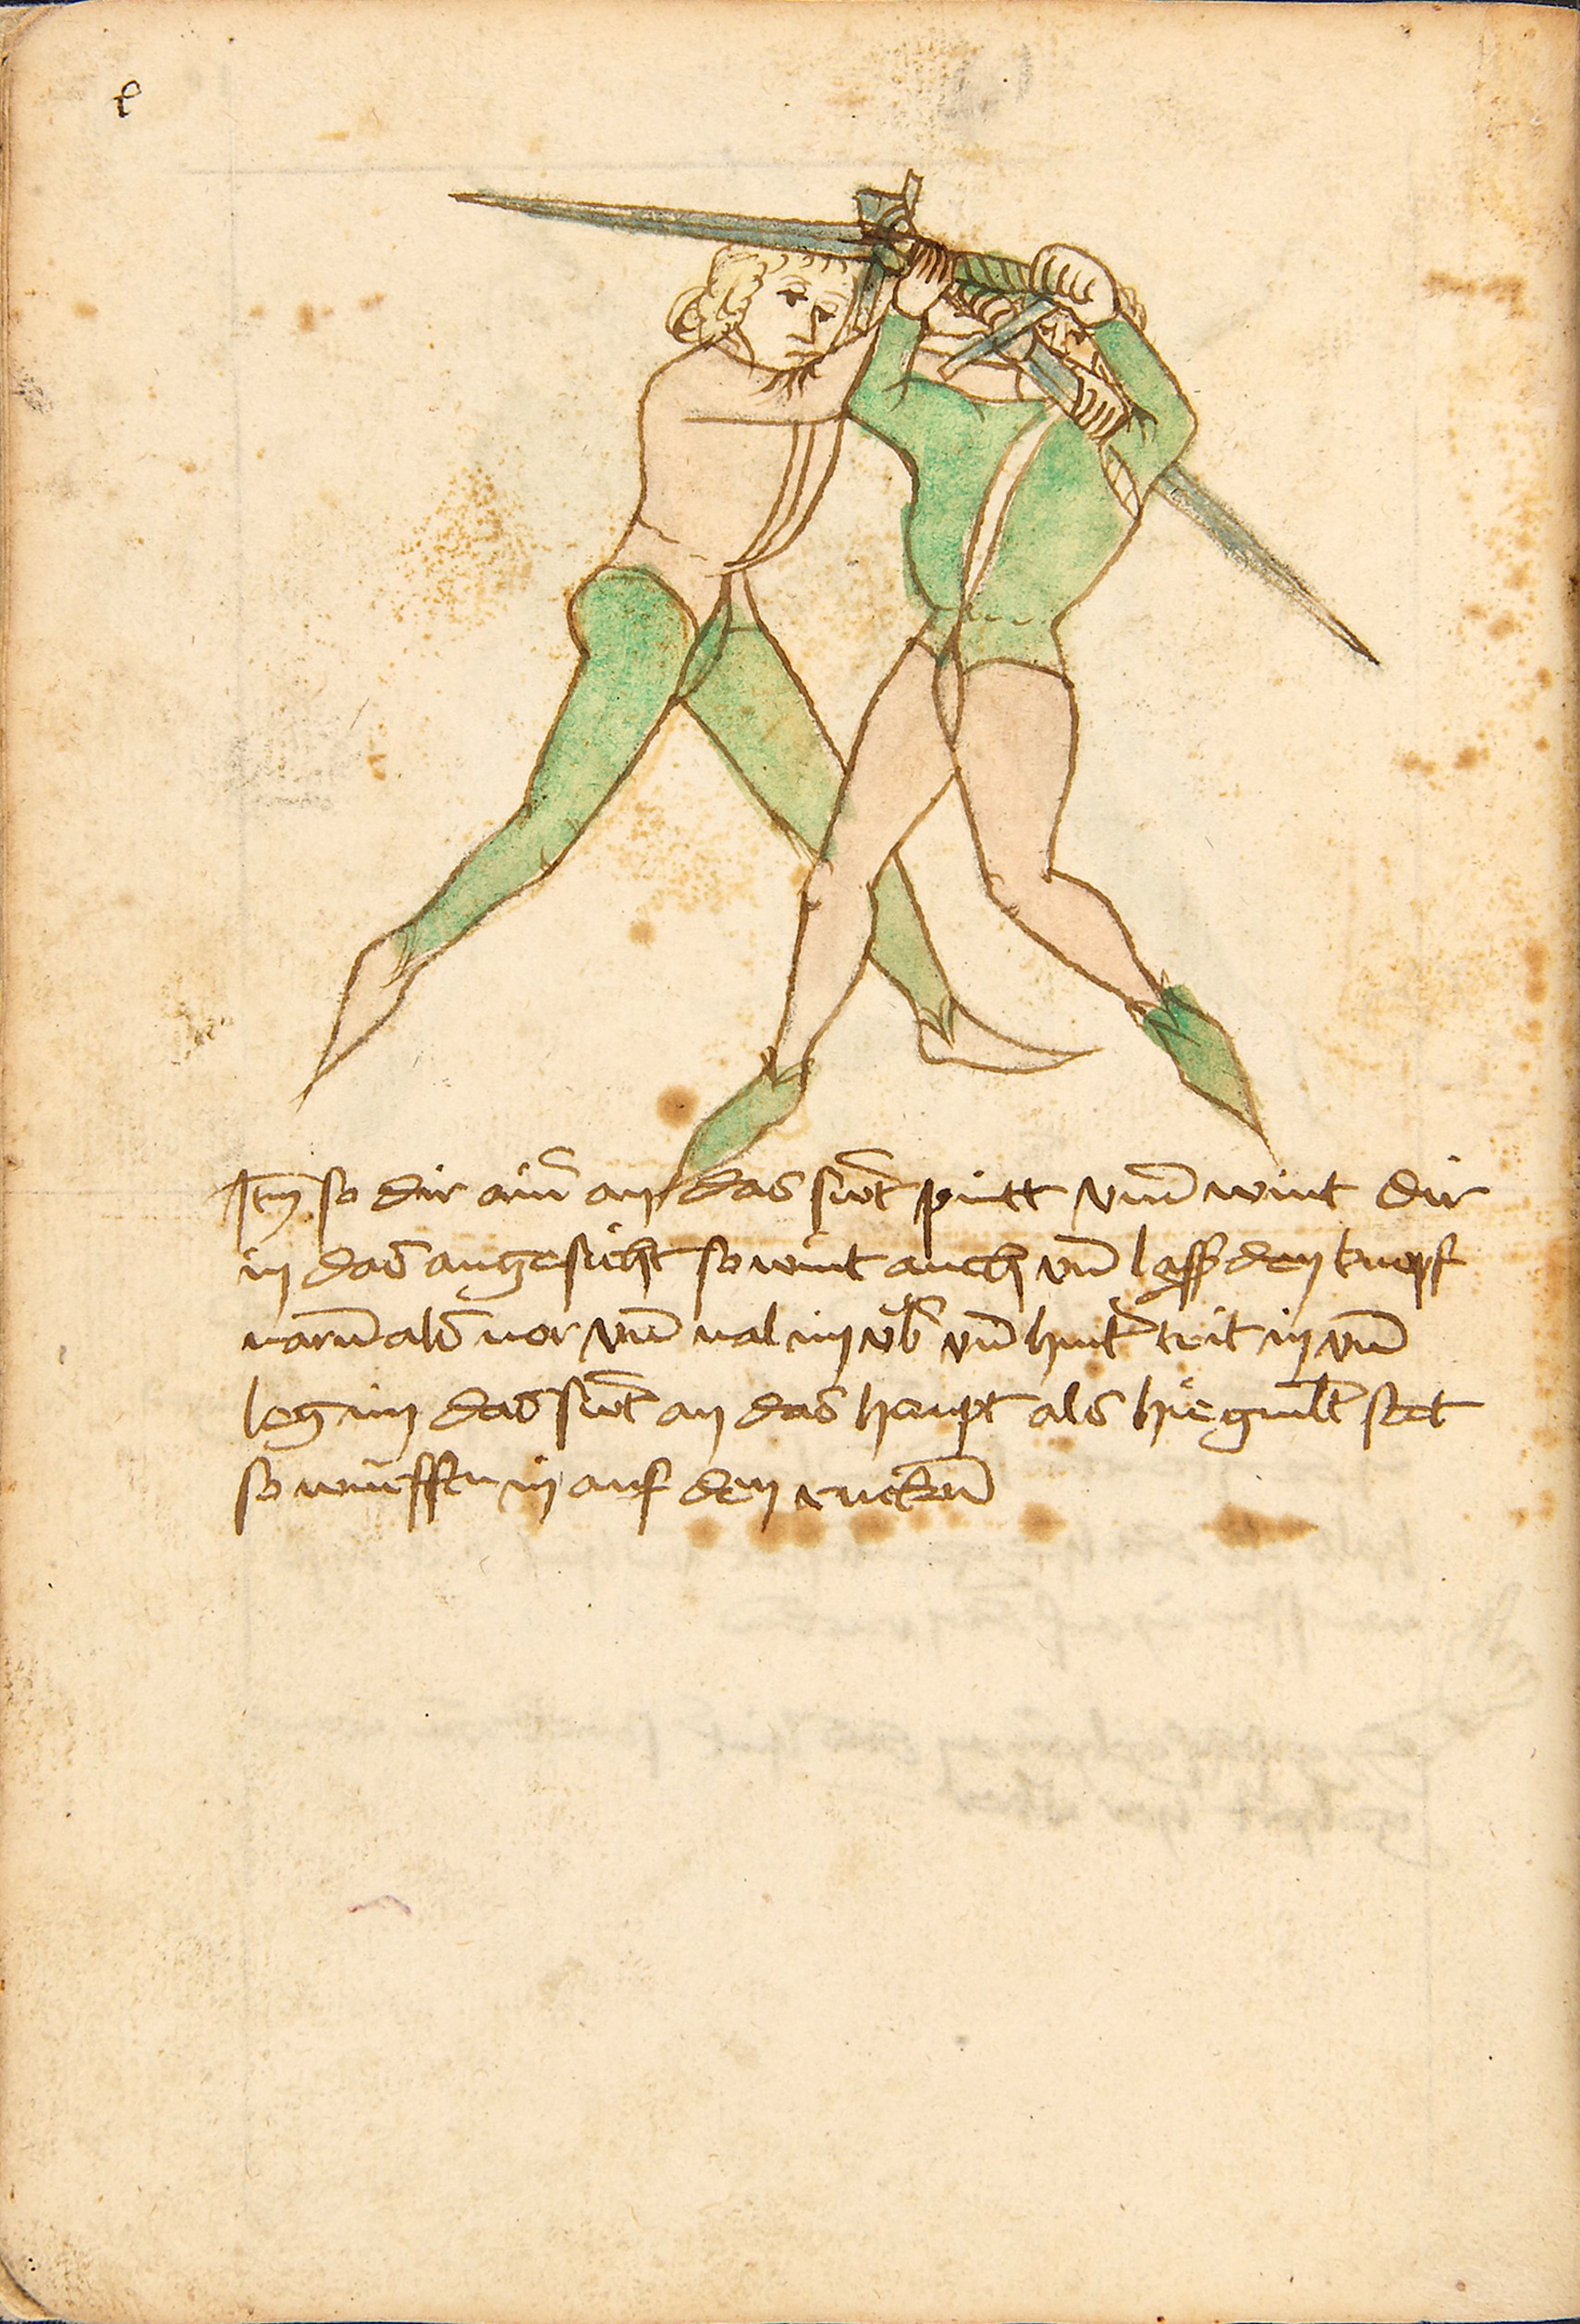 e
Itm̄ so dir ainr̄ an das swt̄ pintt vnd̄ wint dir
in das angesicht so wint auch vn̄ lass den knopf
varn̄ als vor vnd̄ val im v̄b vn̄ hint̄ trit in vnd̄
leg im das swt̄ an das haupt als hie gmlt̄ stet
so wirffstu in auf den rucken̄